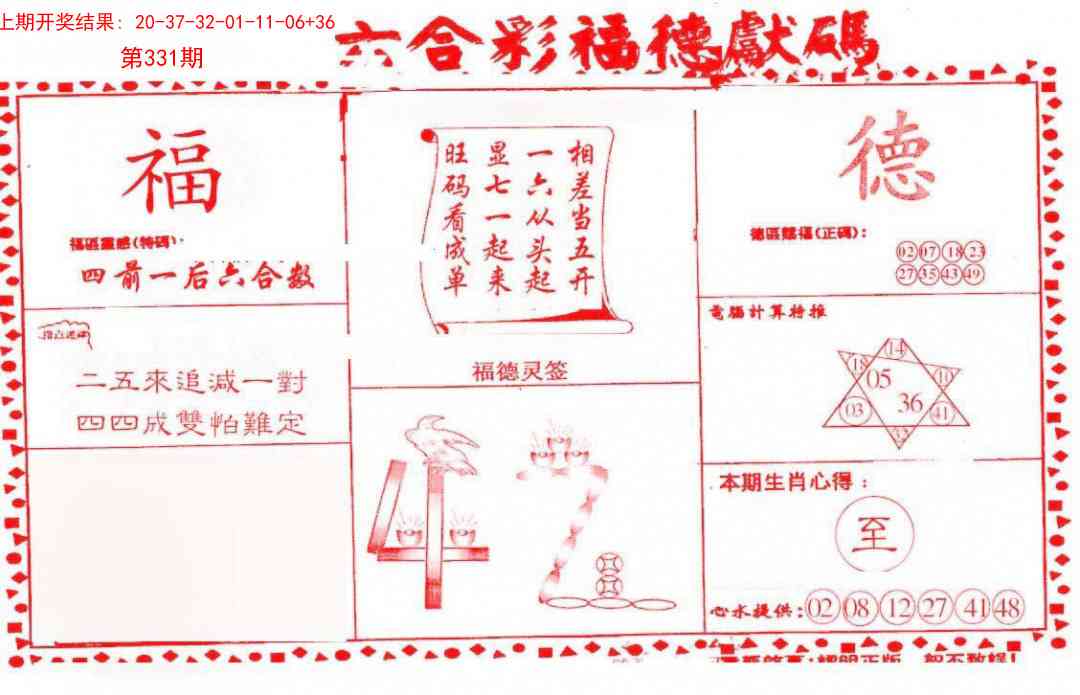 上期开奖结果：20-37-32-01-11-06+36
第331期
六合彩福德獻碼
福
福區靈感(特碼)：
四前一后六合数
二五來追减一對
四四成雙怕難定
相差当五开
一六从头起
显七一起来
旺码看成单
福德灵签
德
德區賜福(正碼)：
02 07 18 23
27 35 43 49
電腦計算特推
14
18
05
10
03
36
41
33
本期生肖心得：
至
心水提供：02 08 12 27 41 48